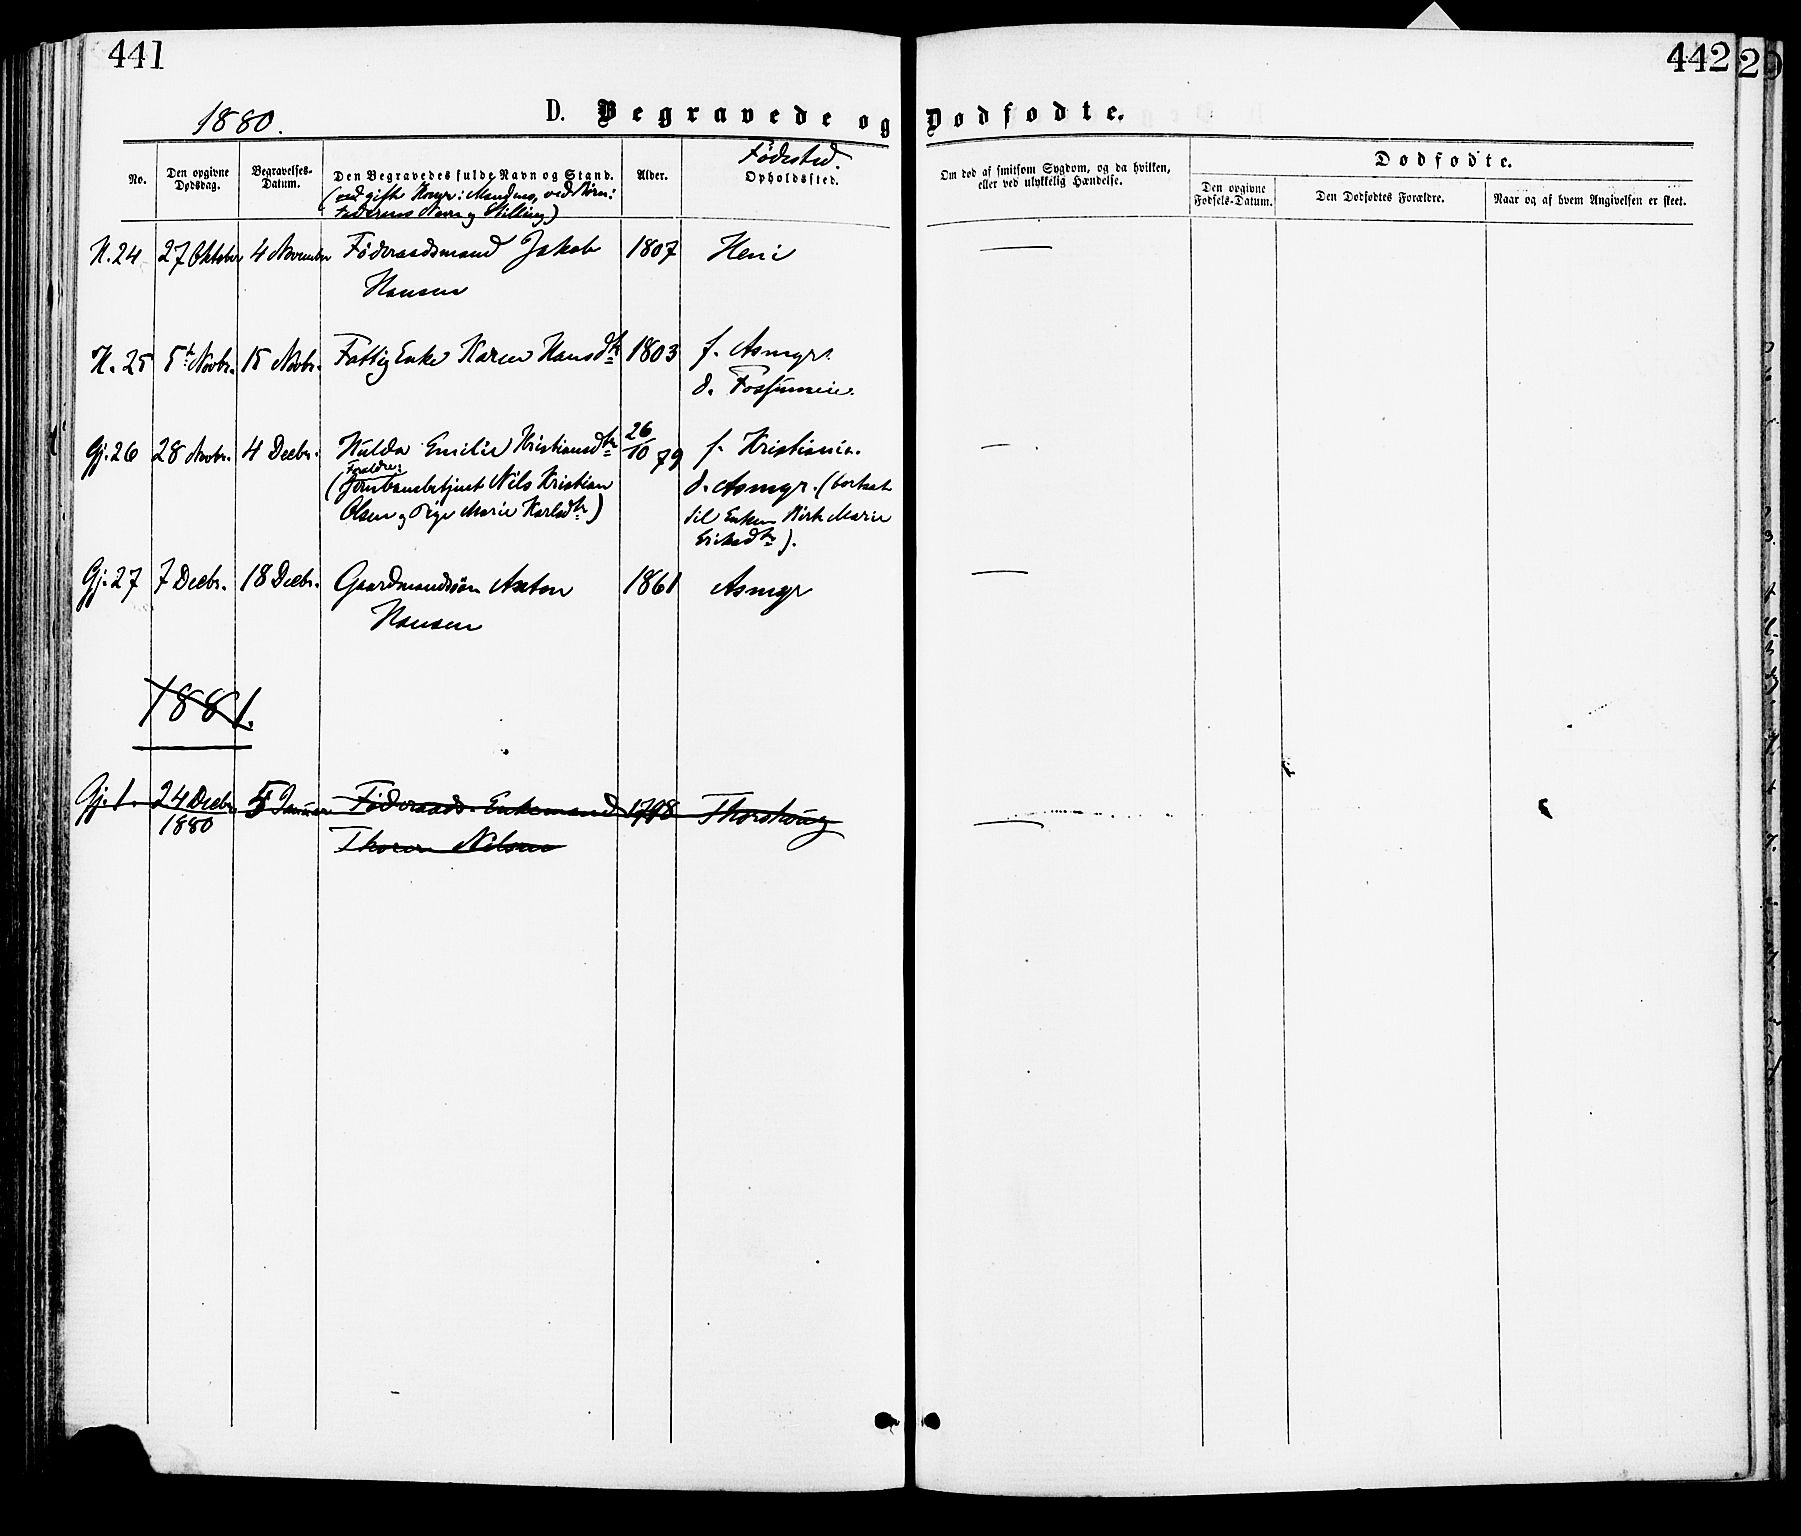 441
442
1880.
D. Begravede og Dødfødte.
No.
Den opgivne Dødsdag.
Begravelses-Datum.
Den Begravedes fulde Navn og Stand.
(ved gifte Koner: Mandens, ved Børn:
Faderens Navn og Stilling)
Alder.
Fødested.
Opholdssted.
Om død af smitsom Sygdom, og da hvilken,
eller ved ulykkelig Hændelse.
Dødfødte.
Den opgivne Fødsels-Datum.
Den Dødfødtes Forældre.
Naar og af hvem Angivelsen er skeet.
N. 24 27 Oktober 4 November Føderaadsmand Jakob 1807
Hansen
N. 25 5t Novbr. 15 Novbr. Fattig Enke Karen Hansdtr 1803 f. Asmyr.
d. Fossumeie.
Gj. 26 28 Novbr. 4 Decbr. Hulda Emilie Kristiansdtr 26/10 79 f. Kristiania.
Forældre:
(Jernbanebetjent Nils Kristian d. Asmyr. (bortsat
Olsen og Pige Marie Karlsdtr) til Enken Marie
Eriksdtr).
Gj. 27 7 Decbr. 18 Decbr. Gaardmandssøn Anton 1861 Asmyr
Hansen
1881.
Gj. 1. 24 Decbr 1880 5 Januar Føderaads-Enkemand 1798
Thorer Nilsen